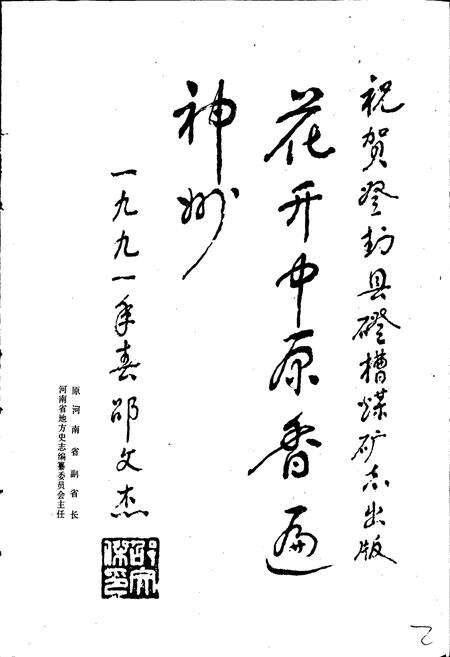 祝贺登封县磴槽煤矿志出版
花开中原香遍
神州
一九九一年春 邵文杰
原河南省副省长
河南省地方史志编纂委员会主任